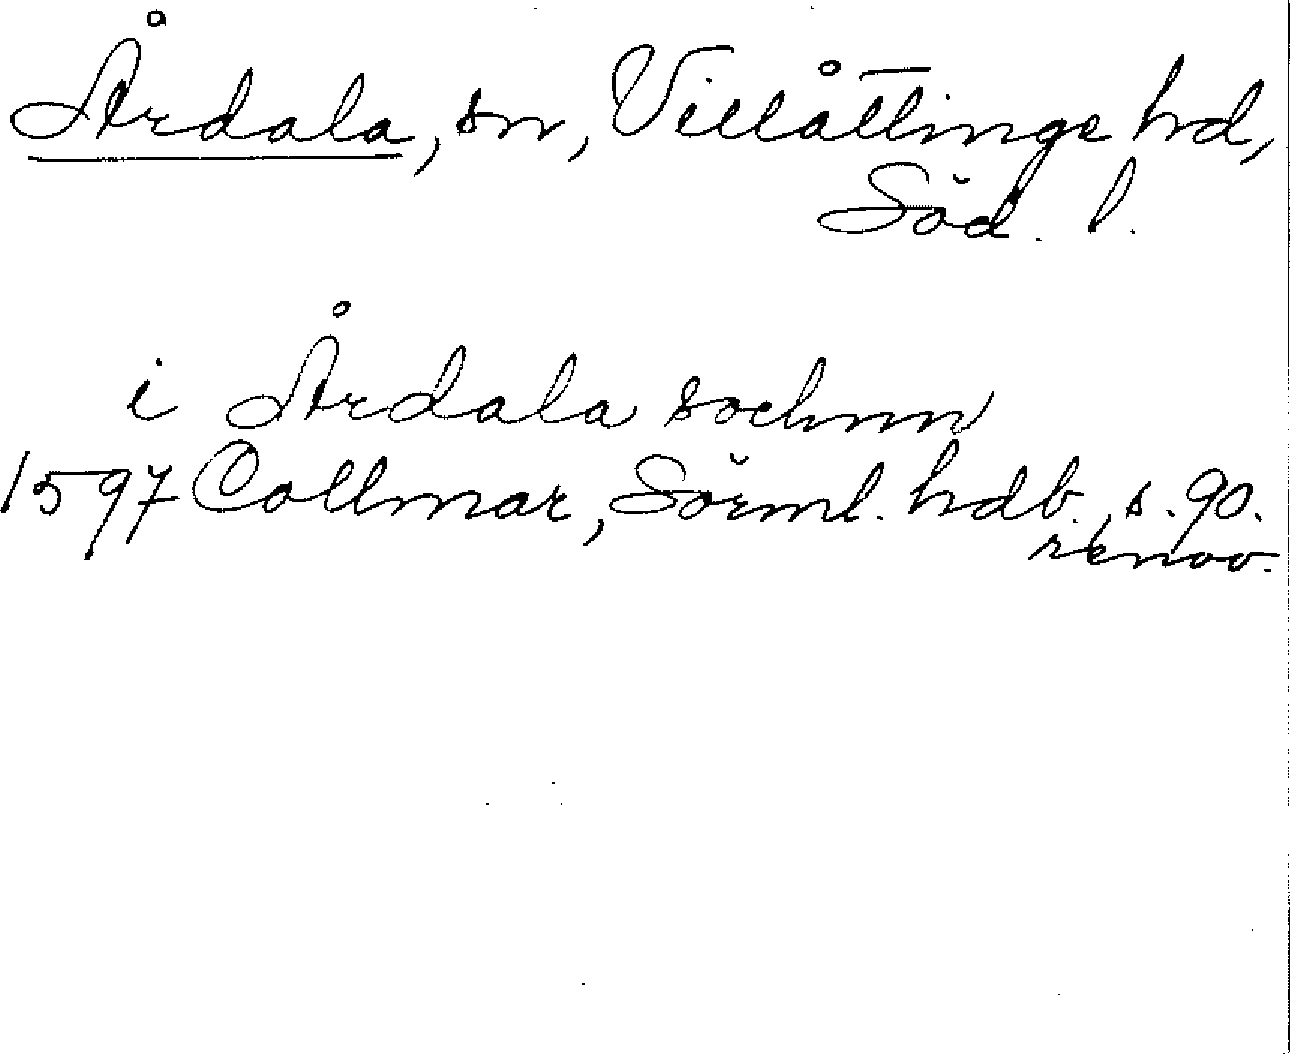 Årdala, sn, Villåttinge hd,
Söd. l.
i Årdala sochnn
1597 Collmar, Sörml. hdb., s. 90.
renov.